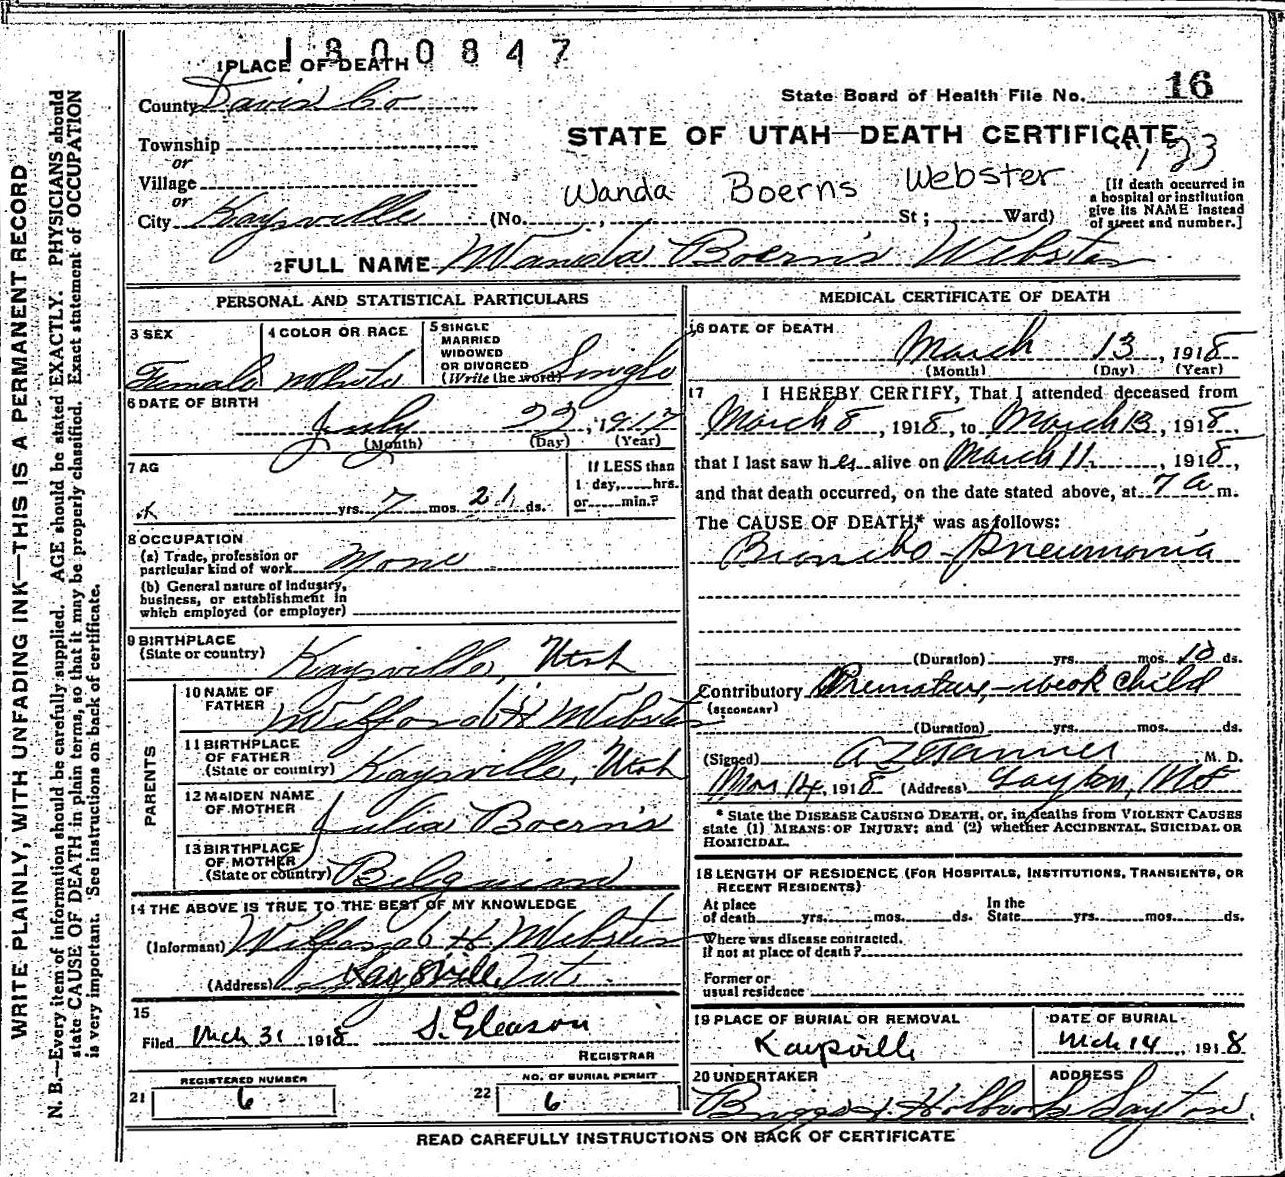 1800847
1 PLACE OF DEATH
County Davis Co
State Board of Health File No. 16
STATE OF UTAH—DEATH CERTIFICATE
Township
or
Village
or
City Kaysville
123
Wanda Boerns Webster
(No. St; Ward)
[If death occurred in
a hospital or institution
give its NAME instead
of street and number.]
2 FULL NAME Wanda Boerns Webster
WRITE PLAINLY, WITH UNFADING INK—THIS IS A PERMANENT RECORD
N. B.—Every item of information should be carefully supplied. AGE should be stated EXACTLY. PHYSICIANS should
state CAUSE OF DEATH in plain terms, so that it may be properly classified. Exact statement of OCCUPATION
is very important. See instructions on back of certificate.
PERSONAL AND STATISTICAL PARTICULARS
3 SEX
Female
4 COLOR OR RACE
White
5 SINGLE
MARRIED
WIDOWED
OR DIVORCED
(Write the word) Single
6 DATE OF BIRTH
July 22, 1917
(Month) (Day) (Year)
7 AG
yrs. 7 mos. 21 ds.
If LESS than
1 day, hrs.
or min.?
8 OCCUPATION
(a) Trade, profession or
particular kind of work None
(b) General nature of industry,
business, or establishment in
which employed (or employer)
9 BIRTHPLACE
(State or country) Kaysville, Utah
PARENTS
10 NAME OF
FATHER Wilford H Webster
11 BIRTHPLACE
OF FATHER
(State or country) Kaysville, Utah
12 MAIDEN NAME
OF MOTHER Julia Boerns
13 BIRTHPLACE
OF MOTHER
(State or country) Belgium
14 THE ABOVE IS TRUE TO THE BEST OF MY KNOWLEDGE
(Informant) Wilford H Webster
(Address) Kaysville, Ut.
15
Filed Mch 31 1918 S. Gleason
REGISTRAR
21 REGISTERED NUMBER
6
22 NO. OF BURIAL PERMIT
6
MEDICAL CERTIFICATE OF DEATH
16 DATE OF DEATH
March 13, 1918
(Month) (Day) (Year)
17 I HEREBY CERTIFY, That I attended deceased from
March 8, 1918, to March 13, 1918,
that I last saw her alive on March 11, 1918,
and that death occurred, on the date stated above, at 7 a m.
The CAUSE OF DEATH* was as follows:
Broncho-pneumonia
(Duration) yrs. mos. 10 ds.
Contributory Premature,—weak child
(SECONDARY)
(Duration) yrs. mos. ds.
(Signed) A Z Tanner M. D.
Mar 14, 1918 (Address) Layton, Ut
* State the DISEASE CAUSING DEATH, or, in deaths from VIOLENT CAUSES
state (1) MEANS OF INJURY; and (2) whether ACCIDENTAL, SUICIDAL OR
HOMICIDAL.
18 LENGTH OF RESIDENCE (FOR HOSPITALS, INSTITUTIONS, TRANSIENTS, OR
RECENT RESIDENTS)
At place
of death yrs. mos. ds.
In the
State yrs. mos. ds.
Where was disease contracted,
if not at place of death?
Former or
usual residence
19 PLACE OF BURIAL OR REMOVAL
Kaysville
DATE OF BURIAL
Mch 14, 1918
20 UNDERTAKER
Briggs & Holbrook
ADDRESS
Layton
READ CAREFULLY INSTRUCTIONS ON BACK OF CERTIFICATE